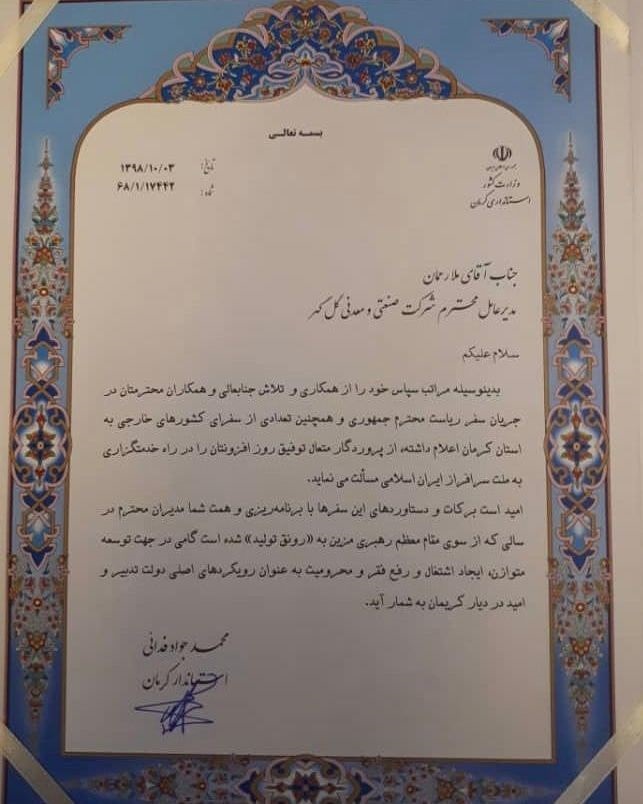 بسمه تعالی
جمهوری اسلامی ایران
وزارت کشور
استانداری کرمان
تاریخ: ۱۳۹۸/۱۰/۰۳
شماره: ۶۸/۱/۱۷۴۴۲
جناب آقای ملارحمان
مدیرعامل محترم شرکت صنعتی و معدنی گل گهر
سلام علیکم
بدینوسیله مراتب سپاس خود را از همکاری و تلاش جنابعالی و همکاران محترمتان در
جریان سفر ریاست محترم جمهوری و همچنین تعدادی از سفرای کشورهای خارجی به
استان کرمان اعلام داشته، از پروردگار متعال توفیق روز افزونتان را در راه خدمتگزاری
به ملت سرافراز ایران اسلامی مسألت می نماید.
امید است برکات و دستاوردهای این سفرها با برنامه‌ریزی و همت شما مدیران محترم در
سالی که از سوی مقام معظم رهبری مزین به «رونق تولید» شده است گامی در جهت توسعه
متوازن، ایجاد اشتغال و رفع فقر و محرومیت به عنوان رویکردهای اصلی دولت تدبیر و
امید در دیار کریمان به شمار آید.
محمد جواد فدائی
استاندار کرمان